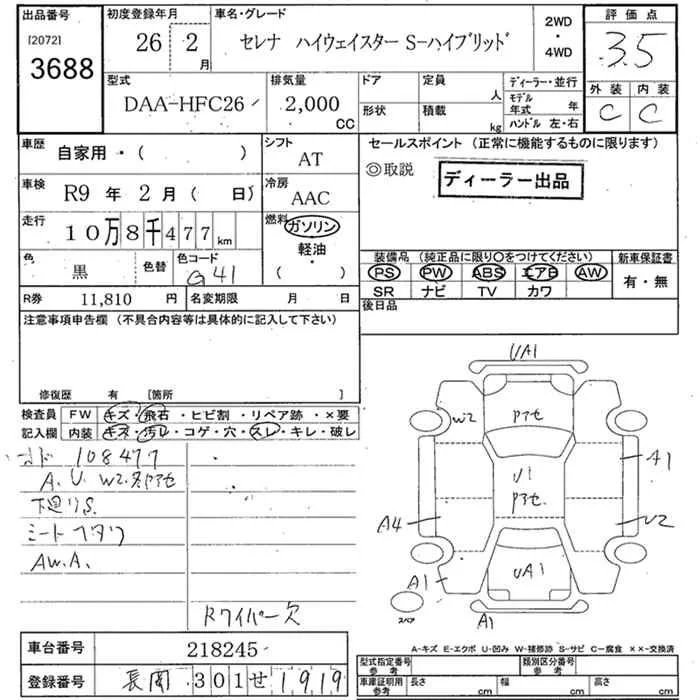 出品番号
[2072]
3688
初度登録年月
26 2 月
車名・グレード
セレナ ハイウェイスター S-ハイブリッド
2WD
・
4WD
評価点
3.5
外装 内装
C C
型式
DAA-HFC26
排気量
2,000 CC
ドア 定員 人
形状 積載 kg
ディーラー・並行
モデル年式 年
ハンドル 左・右
車歴
自家用・( )
シフト
AT
車検
R9 年 2 月 ( 日)
冷房
AAC
走行
10万8千477 km
燃料
ガソリン
軽油・
( )
色
黒
色替
色コード
G41
R券 11,810 円
名変期限 月 日
セールスポイント (正常に機能するものに限ります)
◎取説
ディーラー出品
装備品 (純正品に限り○をつけてください)
PS PW ABS エアB AW
SR ナビ TV カワ
新車保証書
有・無
後日品
注意事項申告欄 (不具合内容等は具体的に記入して下さい)
修復歴 有 [箇所 ]
検査員記入欄
FW キズ・飛石・ヒビ割・リペア跡・×要
内装 キズ・汚レ・コゲ・穴・スレ・キレ・破レ
108477
A.U. W2.
下廻りS.
AW.A.
Rワイパー欠
UA1
W2
アセ
A1
U1
アセ
A4
U2
A1
UA1
スペア
A1
車台番号 218245
登録番号 長岡 301 せ 1919
A-キズ E-エクボ U-凹み W-補修跡 S-サビ C-腐食 ××-交換済
型式指定番号 参考
類別区分番号 参考
車庫証明用 参考
長さ cm 幅 cm 高さ cm